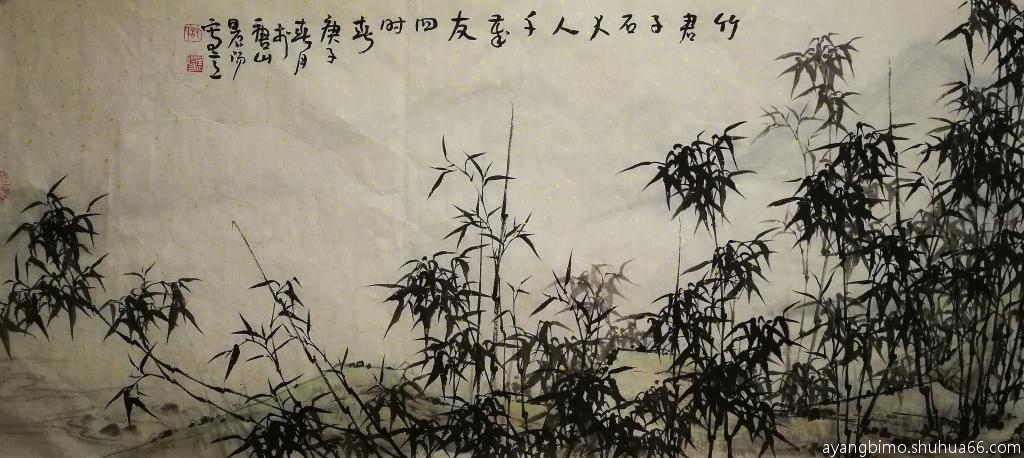 竹君子石大人千歲友四时春
庚子
春月
於
唐山
晨阳
ayangbimo.shuhua66.com